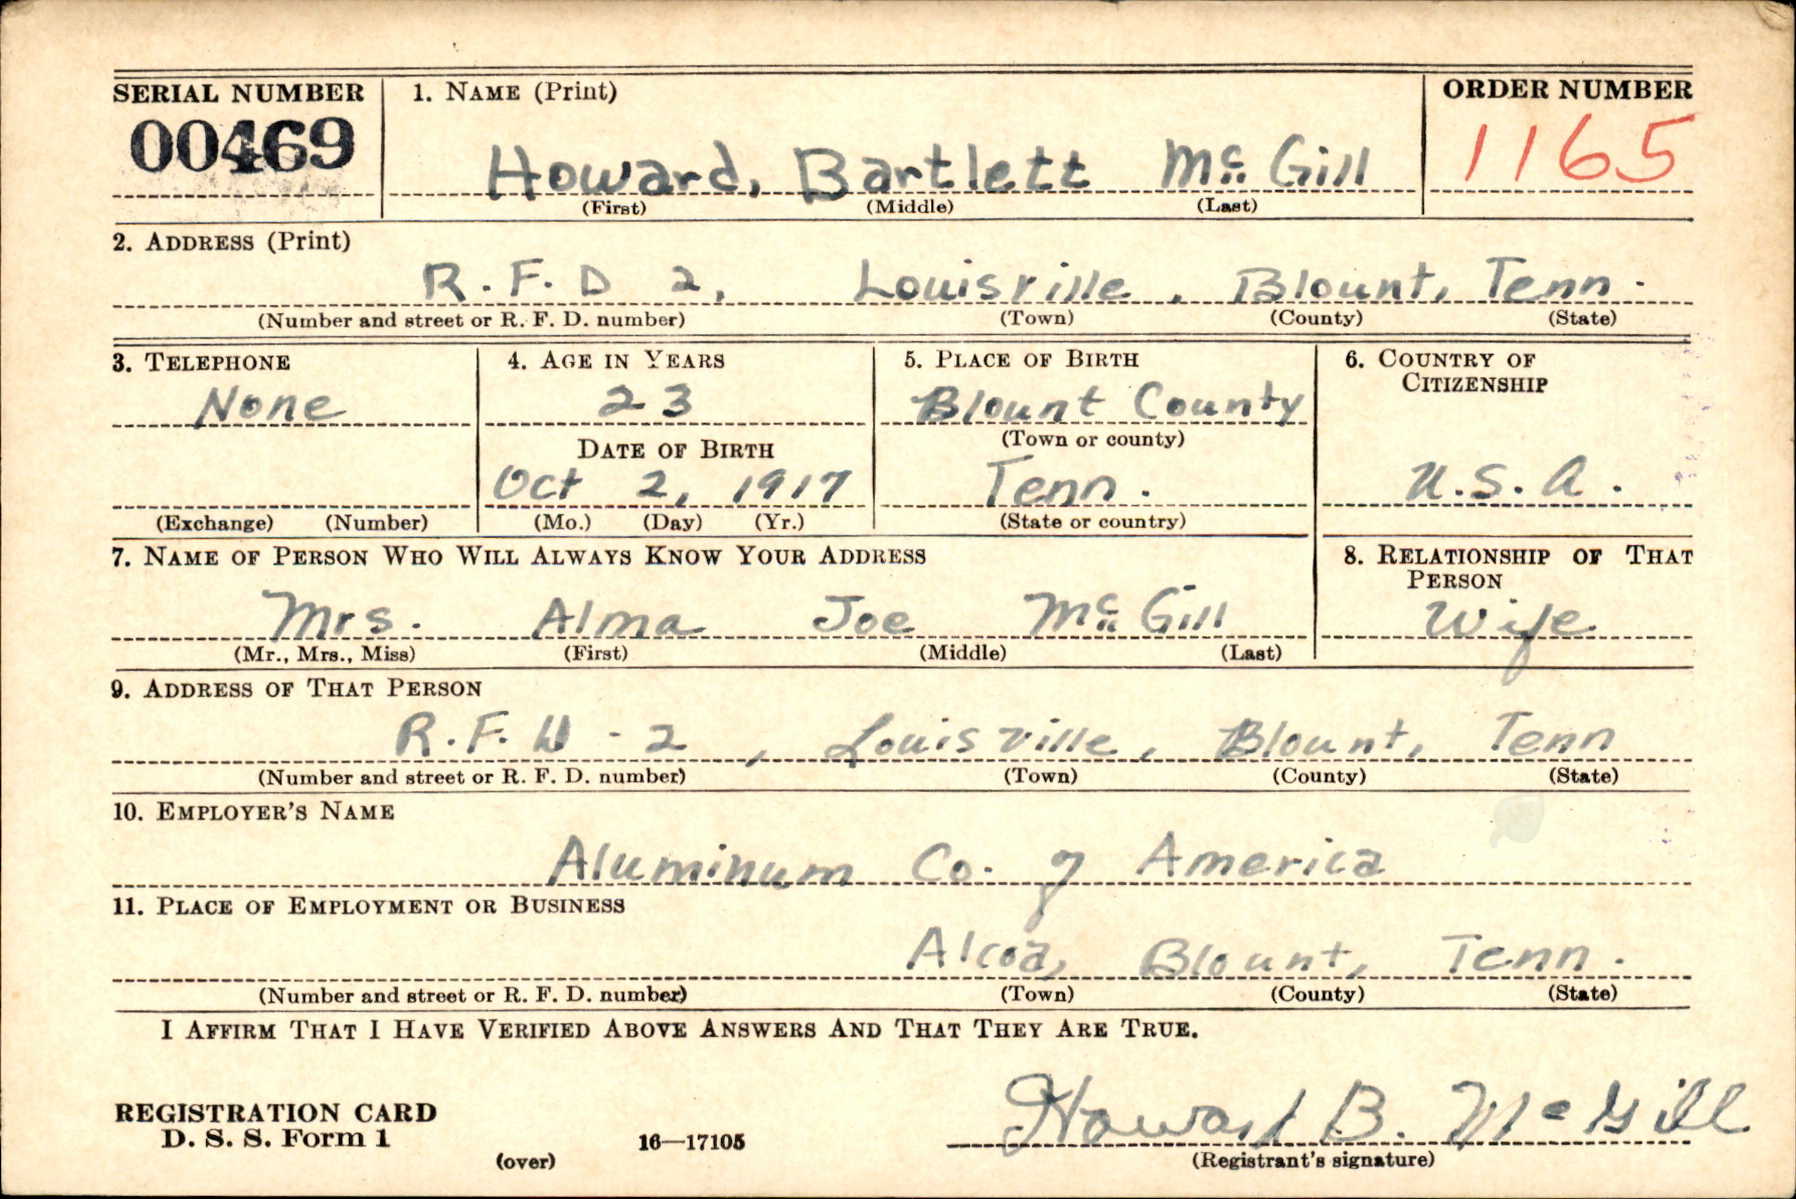 SERIAL NUMBER 1. NAME (Print) ORDER NUMBER
00469 Howard, Bartlett Mc Gill 1165
(First) (Middle) (Last)
2. ADDRESS (Print)
R. F. D 2, Louisville, Blount, Tenn.
(Number and street or R. F. D. number) (Town) (County) (State)
3. TELEPHONE 4. AGE IN YEARS 5. PLACE OF BIRTH 6. COUNTRY OF CITIZENSHIP
None 23 Blount County
DATE OF BIRTH (Town or county)
Oct 2, 1917 Tenn. U.S.A.
(Exchange) (Number) (Mo.) (Day) (Yr.) (State or country)
7. NAME OF PERSON WHO WILL ALWAYS KNOW YOUR ADDRESS 8. RELATIONSHIP OF THAT PERSON
Mrs. Alma Joe Mc Gill Wife
(Mr., Mrs., Miss) (First) (Middle) (Last)
9. ADDRESS OF THAT PERSON
R.F.D - 2, Louisville, Blount, Tenn
(Number and street or R. F. D. number) (Town) (County) (State)
10. EMPLOYER'S NAME
Aluminum Co. of America
11. PLACE OF EMPLOYMENT OR BUSINESS
Alcoa, Blount, Tenn.
(Number and street or R. F. D. number) (Town) (County) (State)
I AFFIRM THAT I HAVE VERIFIED ABOVE ANSWERS AND THAT THEY ARE TRUE.
REGISTRATION CARD
D. S. S. Form 1 16—17105 Howard B. McGill
(over) (Registrant's signature)